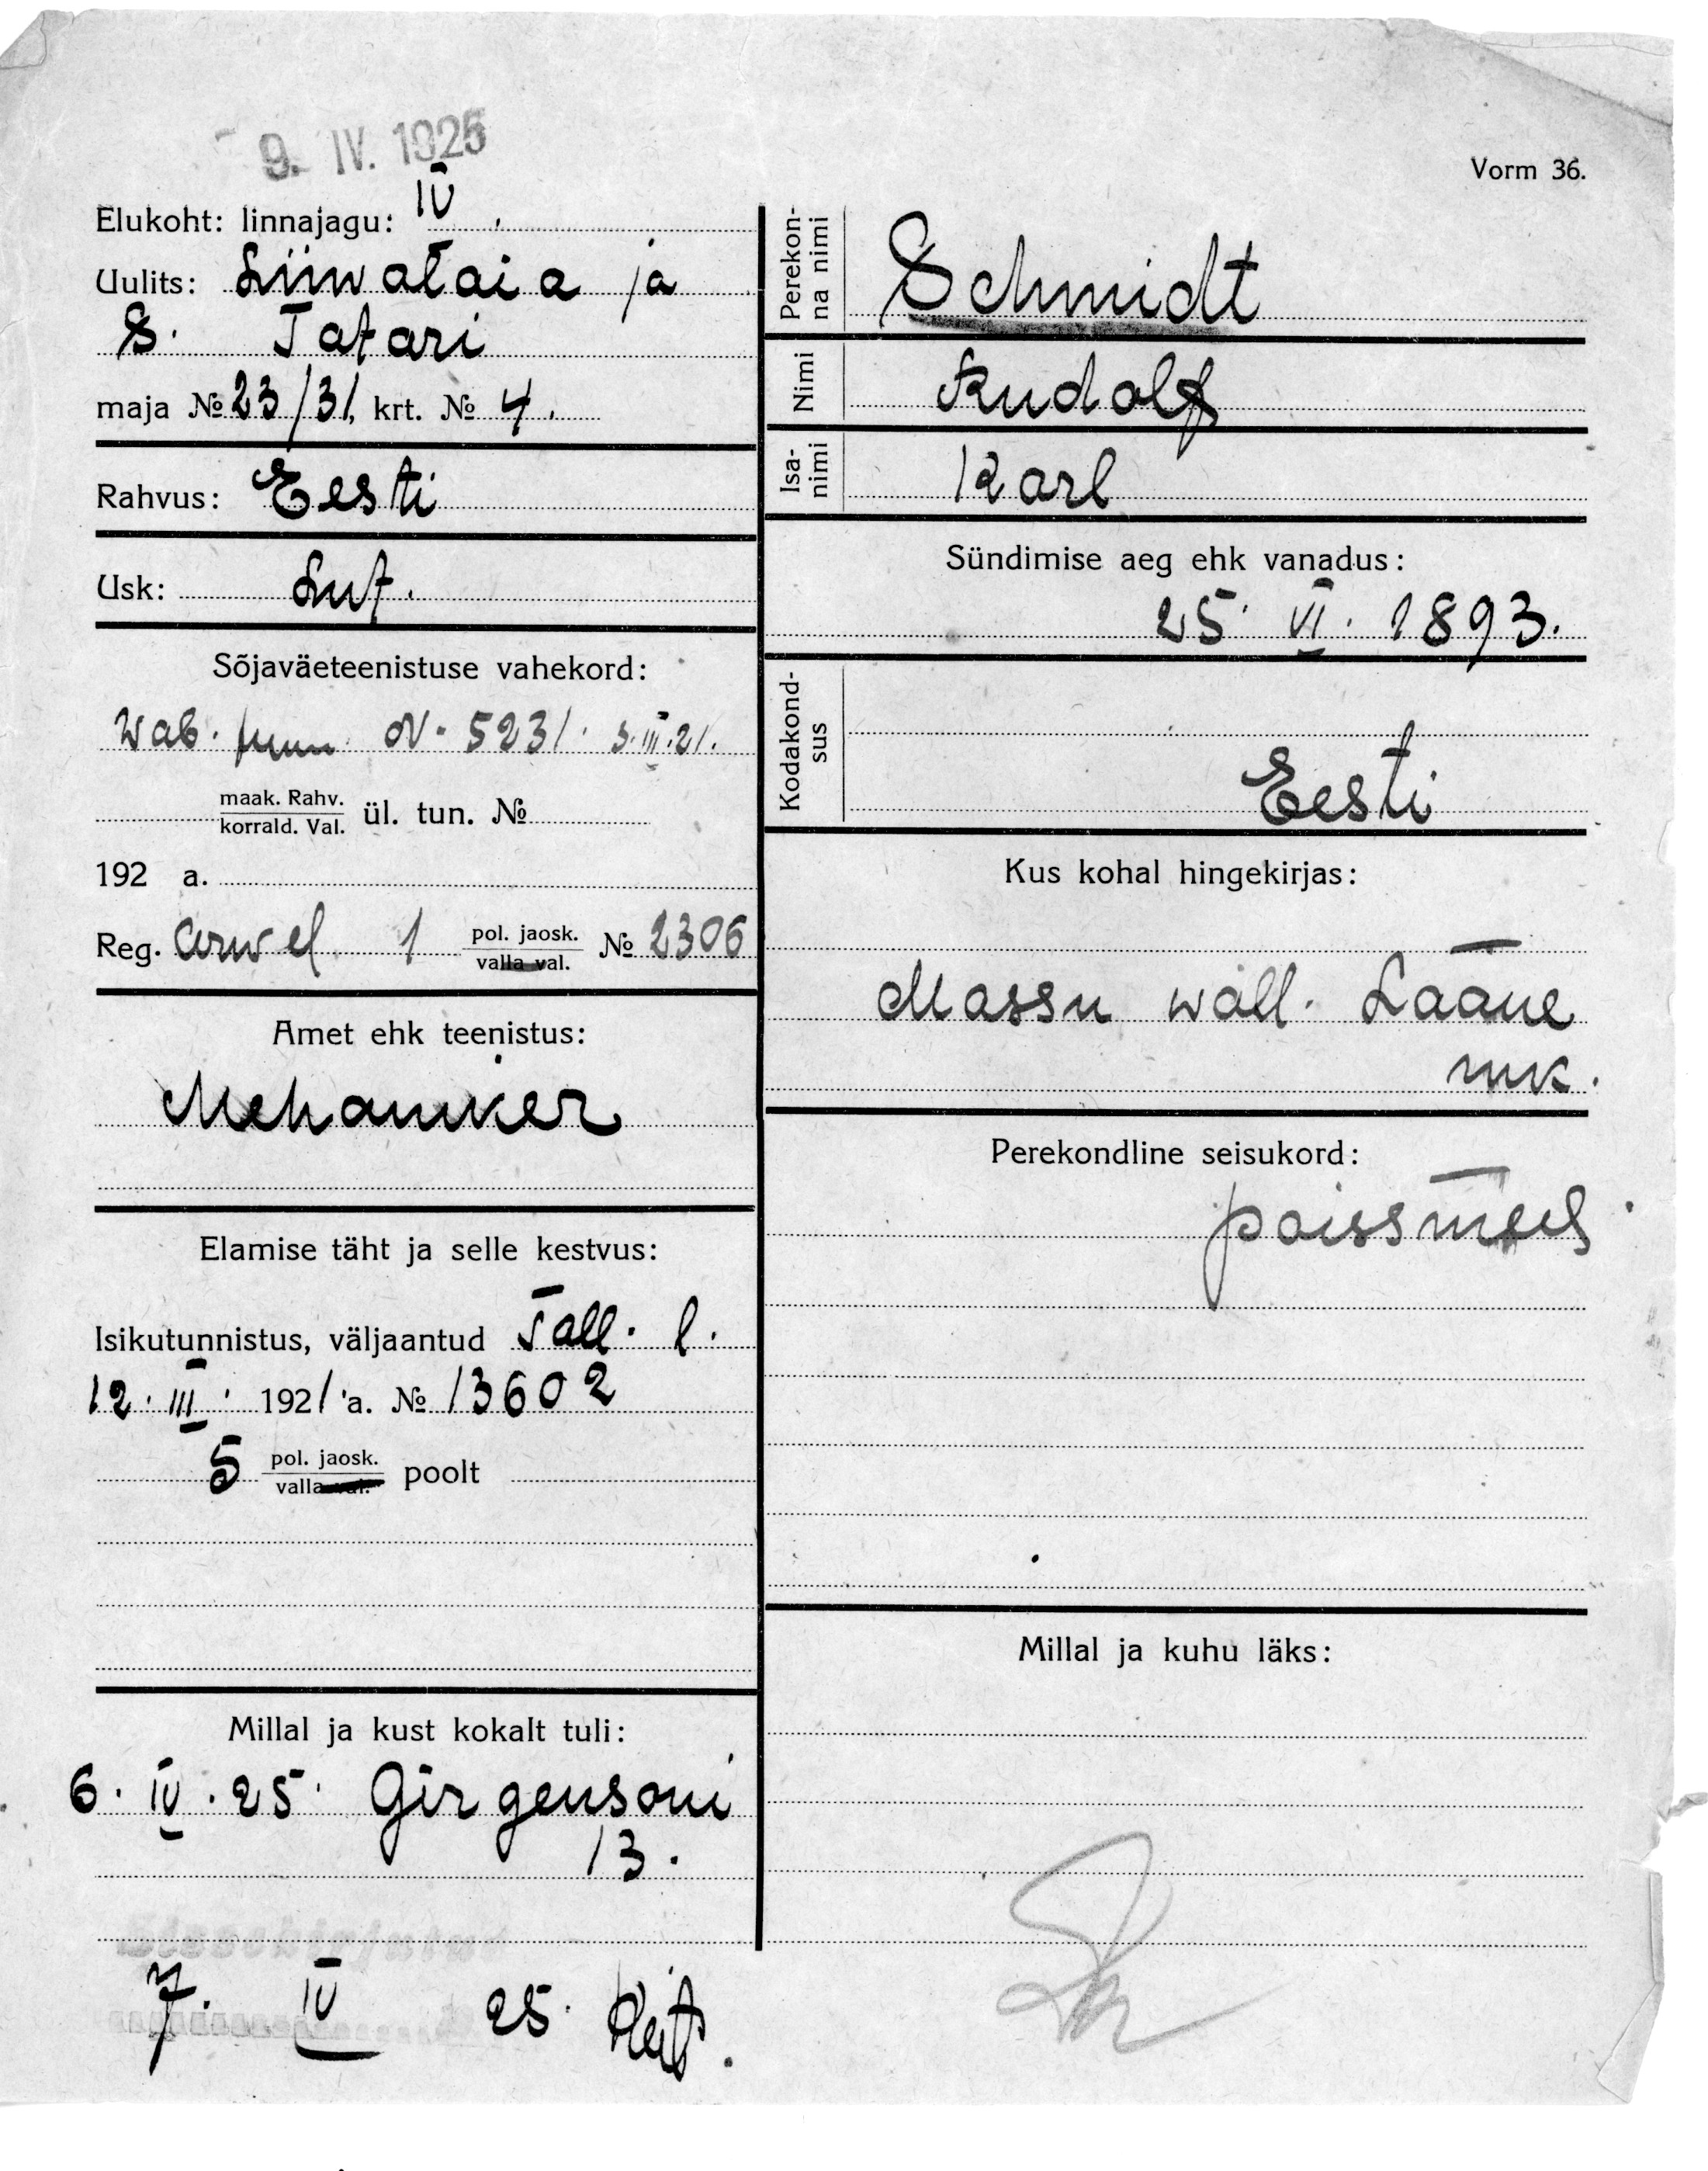 9. IV. 1925
Vorm 36.
Elukoht: linnajagu: IV.
Uulits: Liiwalaia ja
S. Tatari
maja № 23/31, krt. № 4.
Rahvus: Eesti
Usk: Lut.
Sõjaväeteenistuse vahekord:
Wab. tunn № 5231. 3.III.21.
maak. Rahv.
korrald. Val. ül. tun. №
192 a.
Reg. arwel 1 pol. jaosk. № 2306
valla val.
Amet ehk teenistus:
Mehaniker
Elamise täht ja selle kestvus:
Isikutunnistus, väljaantud Tall. l.
12. III. 1921 a. № 13602
5 pol. jaosk. poolt
valla val.
Millal ja kust kokalt tuli:
6. IV. 25. Girgensoni
13.
Sissekirjutud
7. IV 25.
Perekon-
na nimi Schmidt
Nimi Rudolf
Isa-
nimi Karl
Sündimise aeg ehk vanadus:
25. VI. 1893.
Kodakond-
sus Eesti
Kus kohal hingekirjas:
Massu wall. Lääne
mk.
Perekondline seisukord:
poissmees
Millal ja kuhu läks: